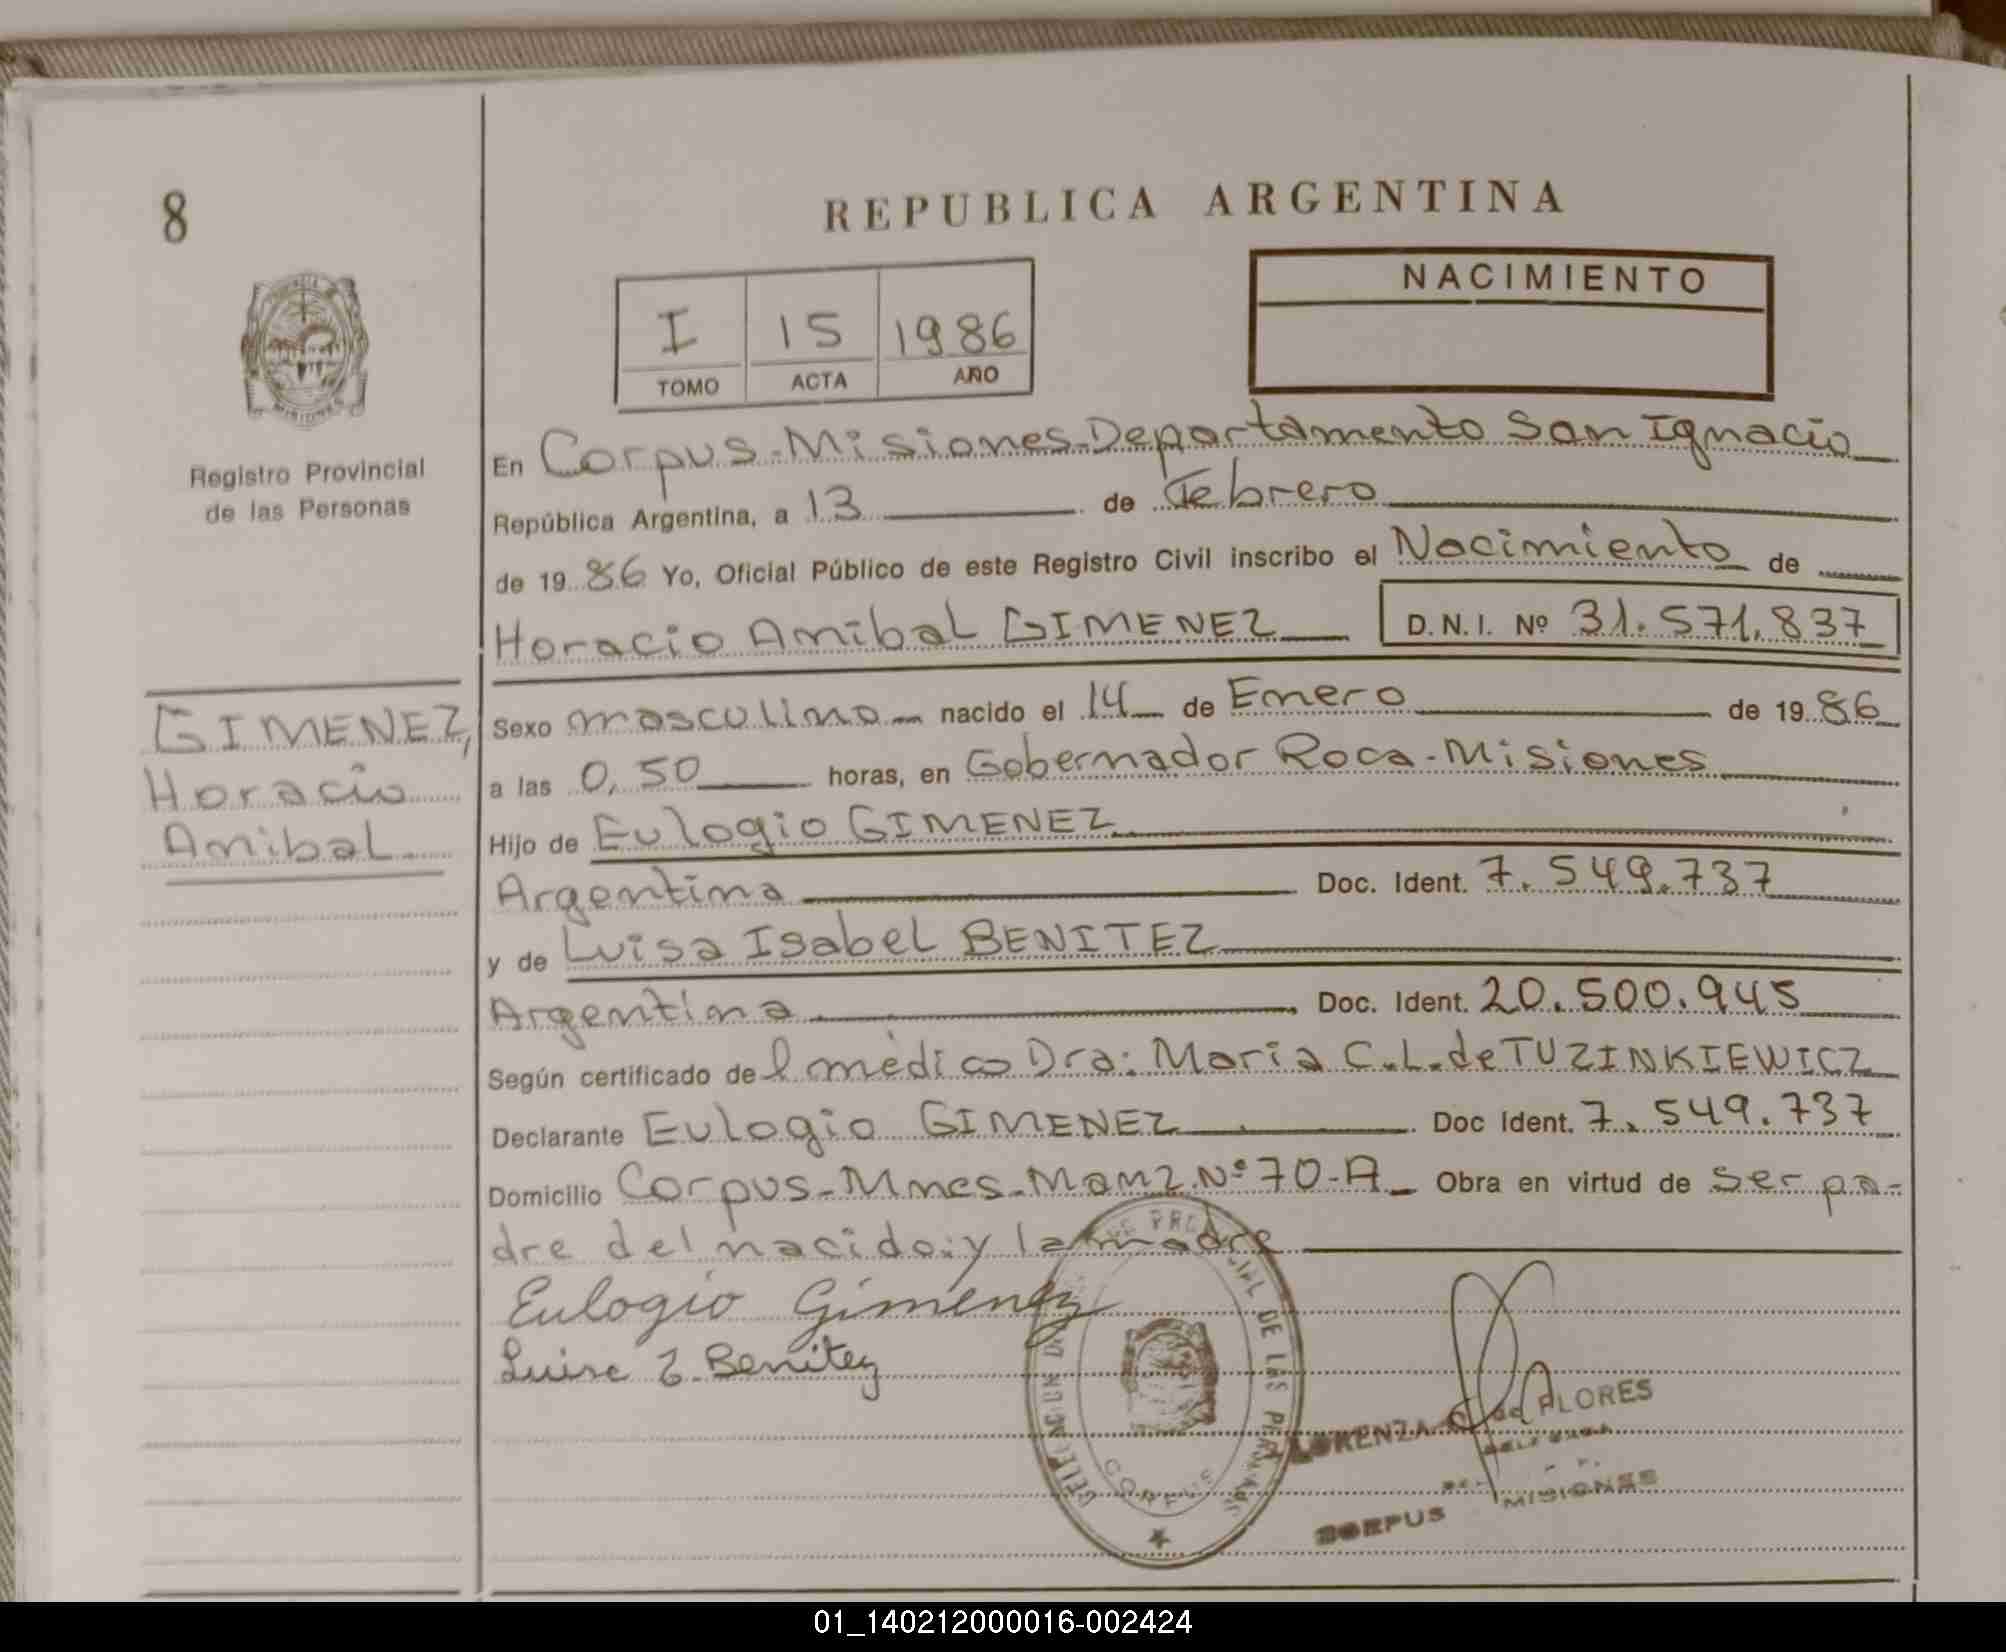 8
REPUBLICA ARGENTINA
NACIMIENTO
I 15 1986
TOMO ACTA AÑO
Registro Provincial
de las Personas
En Corpus-Misiones-Departamento San Ignacio
República Argentina, a 13 de Febrero
de 1986 Yo, Oficial Público de este Registro Civil inscribo el Nacimiento de
Horacio Anibal GIMENEZ D.N.I. Nº 31.571.837
GIMENEZ,
Horacio
Anibal
Sexo masculino nacido el 14 de Enero de 1986
a las 0,50 horas, en Gobernador Roca-Misiones
Hijo de Eulogio GIMENEZ
Argentina Doc. Ident. 7.549.737
y de Luisa Isabel BENITEZ
Argentina Doc. Ident. 20.500.945
Según certificado del médico Dra: Maria C.L.de TUZINKIEWICZ
Declarante Eulogio GIMENEZ Doc Ident. 7.549.737
Domicilio Corpus-Mnes-Manz Nº 70-A Obra en virtud de ser pa-
dre del nacido y la madre
Eulogio Gimenez
Luisa I. Benitez
PROVINCIAL DE LAS PERSONAS
CORPUS
LORENZA de FLORES
DELEGADA
CORPUS MISIONES
01_140212000016-002424